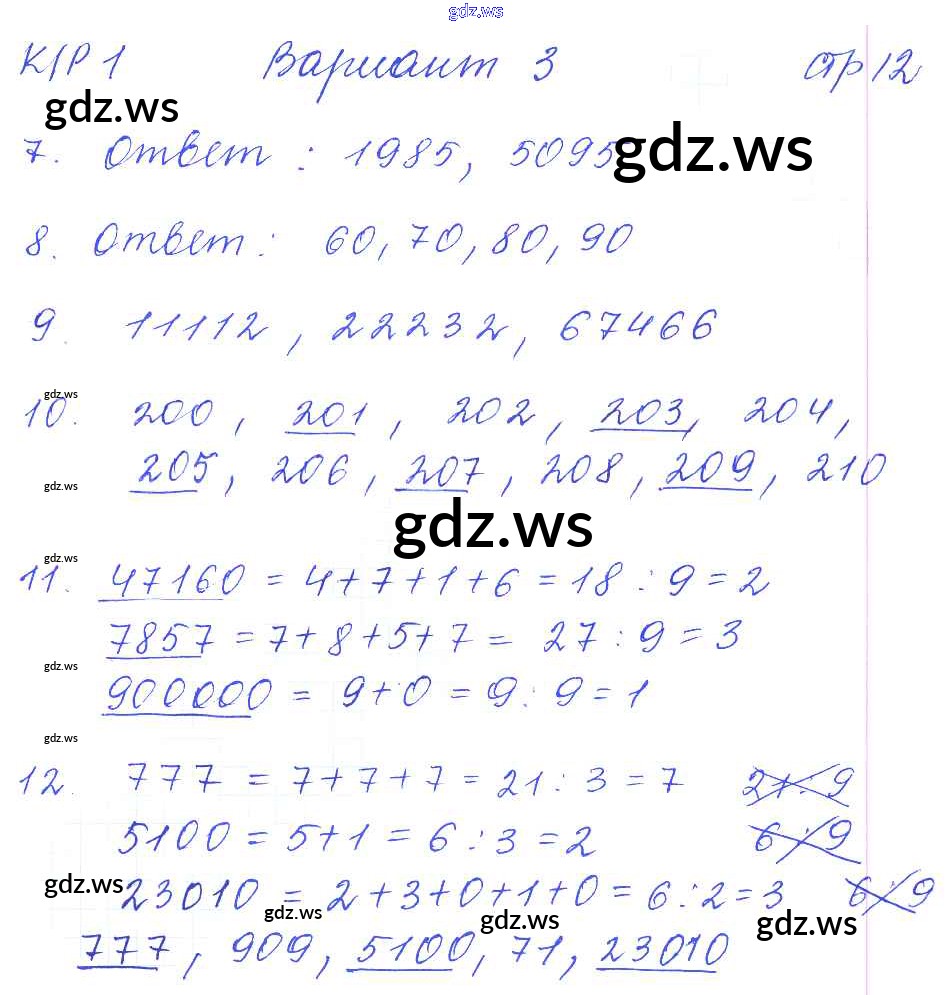 gdz.ws
К/Р 1 Вариант 3 стр 12
gdz.ws
7. Ответ : 1985, 5095 gdz.ws
8. Ответ : 60, 70, 80, 90
9. 11112, 22232, 67466
gdz.ws
10. 200, 201, 202, 203, 204,
205, 206, 207, 208, 209, 210
gdz.ws
gdz.ws
gdz.ws
11. 47160 = 4+7+1+6 = 18 : 9 = 2
7857 = 7+8+5+7 = 27 : 9 = 3
gdz.ws
900000 = 9+0 = 9 : 9 = 1
gdz.ws
12. 777 = 7+7+7 = 21 : 3 = 7 21 : 9
5100 = 5+1 = 6 : 3 = 2 6 : 9
gdz.ws
23010 = 2+3+0+1+0 = 6 : 2 = 3 6 : 9
gdz.ws gdz.ws gdz.ws
777, 909, 5100, 71, 23010